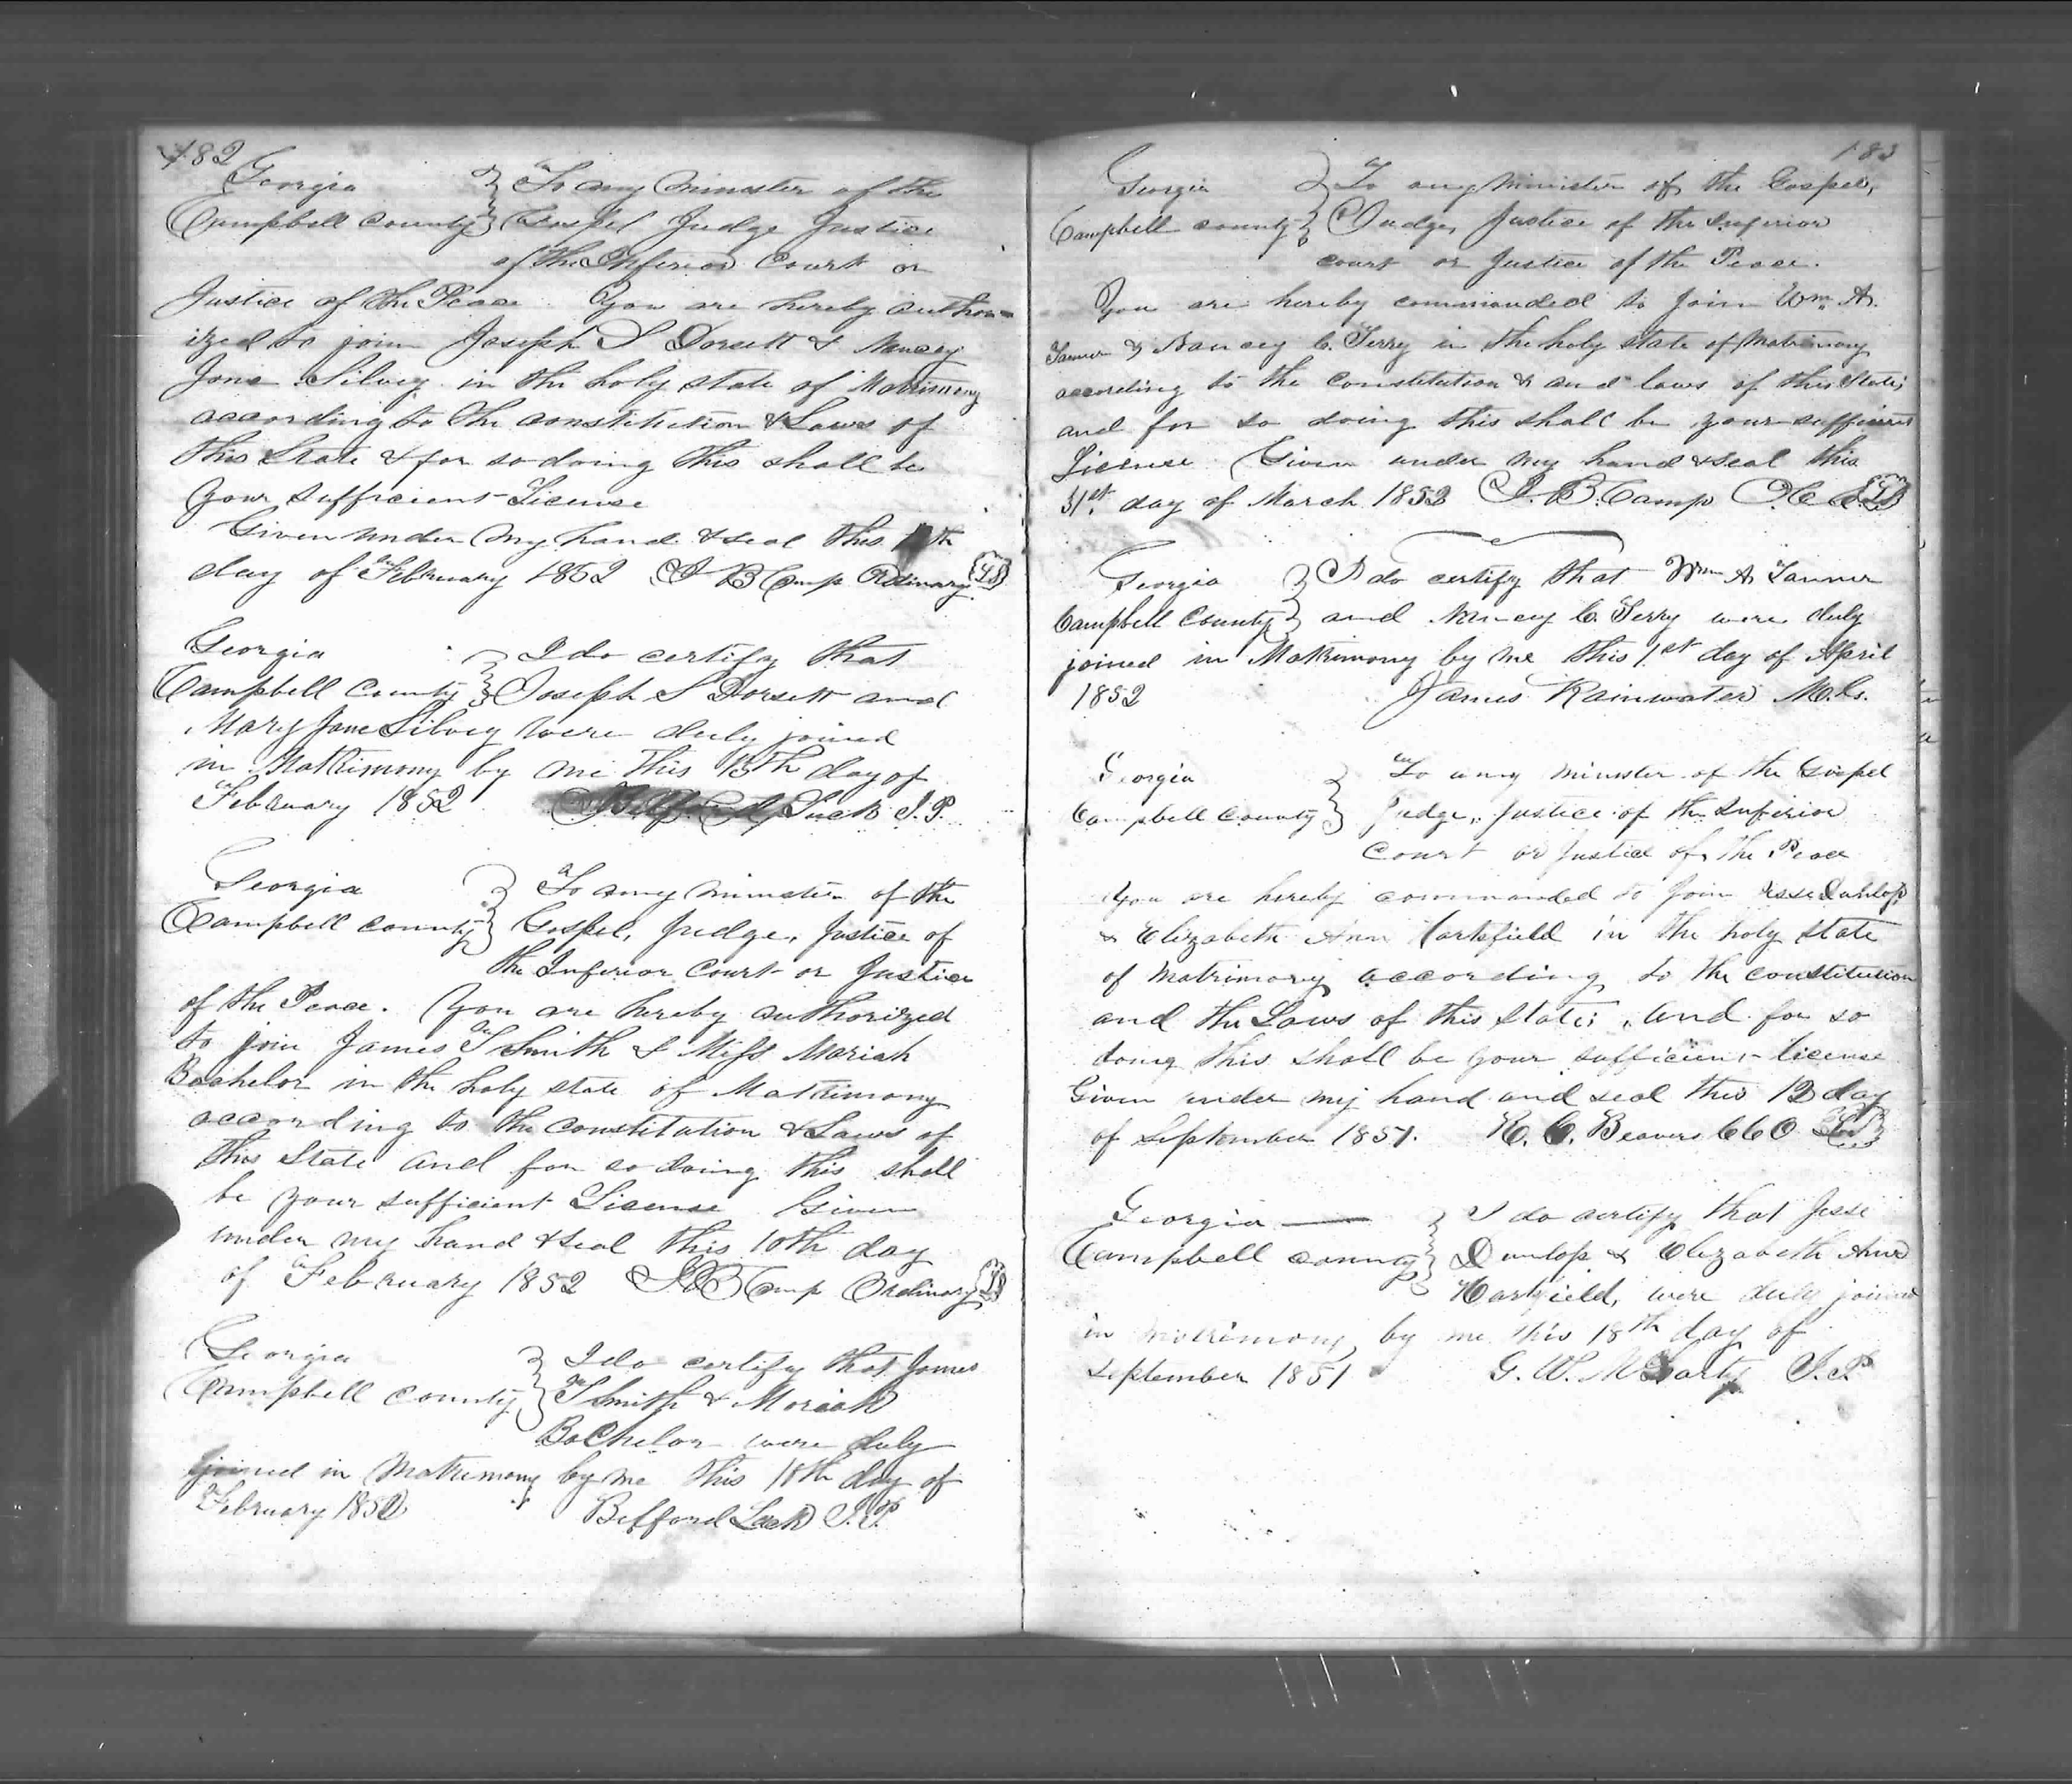 182
Georgia } To any minister of the
Campbell county } Gospel Judge Justice
of the Inferior Court or
Justice of the Peace You are hereby author=
ized to join Joseph S Dorsett & Nancy
Jane Silvey in the holy state of Matrimony
according to the constitution & Laws of
this State & for so doing this shall be
your sufficient License
Given under my hand & seal this th
day of February 1852 J B Camp Ordinary LS
Georgia } I do certify that
Campbell County } Joseph S Dorsett and
Mary Jane Silvey were duly joined
in Matrimony by me this 15th day of
February 1852 Luck J.P.
Georgia } To any minister of the
Campbell county } Gospel, Judge, Justice of
the Inferior Court or Justice
of the Peace. You are hereby authorized
to join James T Smith & Miss Mariah
Bachelor in the holy state of Matrimony
according to the constitution & Laws of
this State and for so doing this shall
be your sufficient License Given
under my hand & seal this 10th day
of February 1852 J B Camp Ordinary LS
Georgia } I do certify that James
Campbell County } T Smith & Moriah
Bachelor were duly
joined in Matrimony by me this 18th day of
February 1852 Befford Luck J.P.
183
Georgia } To any minister of the Gospel,
Campbell county } Judge, Justice of the Inferior
court or Justice of the Peace.
You are hereby commanded to join Wm A.
Tanner & Nancy C. Terry in the holy state of Matrimony
according to the constitution & and laws of this State;
and for so doing this shall be your sufficient
License Given under my hand & seal this
31st. day of March 1852 J. B. Camp O.C.C. LS
Georgia } I do certify that Wm A Tanner
Campbell County } and Nancy C. Terry were duly
joined in Matrimony by me this 1st day of April
1852 James Rainwater M.G.
Georgia } To any minister of the Gospel
Campbell County } Judge, Justice of the Inferior
Court or Justice of the Peace
You are hereby commanded to join Jesse Dunlop
& Elizabeth Ann Hartsfield in the holy state
of matrimony according to the constitution
and the Laws of this State; and for so
doing this shall be your sufficient license
Given under my hand and seal this 12 day
of September 1851. R. C. Beavers CCO LS
Georgia } I do certify that Jesse
Campbell county } Dunlop & Elizabeth Ann
Hartsfield, were duly joined
in matrimony by me this 18th day of
September 1851 G. W. McLarty J.P.